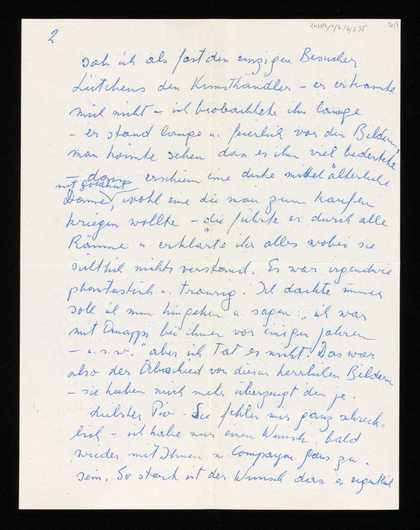 2
sah ich als fast den einzigen Besucher
Lütchens den Kunsthändler – er erkannte
mich nicht u. ich beobachtete ihn lange
– er stand lange u. feierlich vor den Bildern,
man konnte sehen das es ihm viel bedeutete
– dann erschien eine dicke mittelälterliche
mit Goldhut
Dame, wohl eine die man zum kaufen
kriegen wollte – die führte er durch alle
Räume u. erklärte ihr alles wobei sie
sichtlich nichts verstand. Es war irgendwie
phantastisch u. traurig. Ich dachte immer
soll ich nun hingehen u. sagen: "ich war
mit bei ihnen vor einigen Jahren
– u.s.w." aber ich tat es nicht. Das war
also der Abschied vor diesen herrlichen Bildern
– sie haben mich mehr überzeugt den je.
Liebster Pio – Sie fehlen mir ganz schreck-
lich – ich habe nur einen Wunsch: bald
wieder mit Ihnen u. zu
sein. So stark ist der Wunsch das er eigentlich